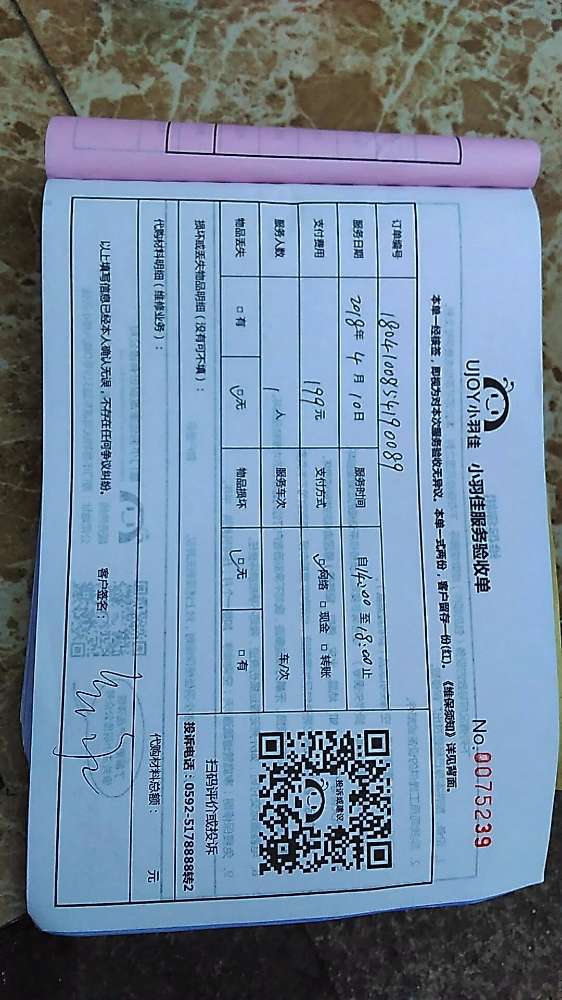 UJOY小羽佳 小羽佳服务验收单 No.0075239
本单一经核签，即视为对本次服务验收无异议。本单一式两份，客户留存一份(红)。《维保须知》详见背面。
订单编号 180410085490089
服务日期 2018年4月10日 服务时间 自14:00至18:00止
支付费用 199元 支付方式 ☑网络 □现金 □转账
服务人数 1人 服务车次 车/次
物品丢失 □有 ☑无 物品损坏 ☑无 □有
投诉或建议
扫码评价或投诉
投诉电话：0592-5178888转2
损坏或丢失物品明细（没有可不填）：
代购材料明细（维修业务）： 代购材料总额： 元
以上填写信息已经本人确认无误，不存在任何争议纠纷。 客户签名：